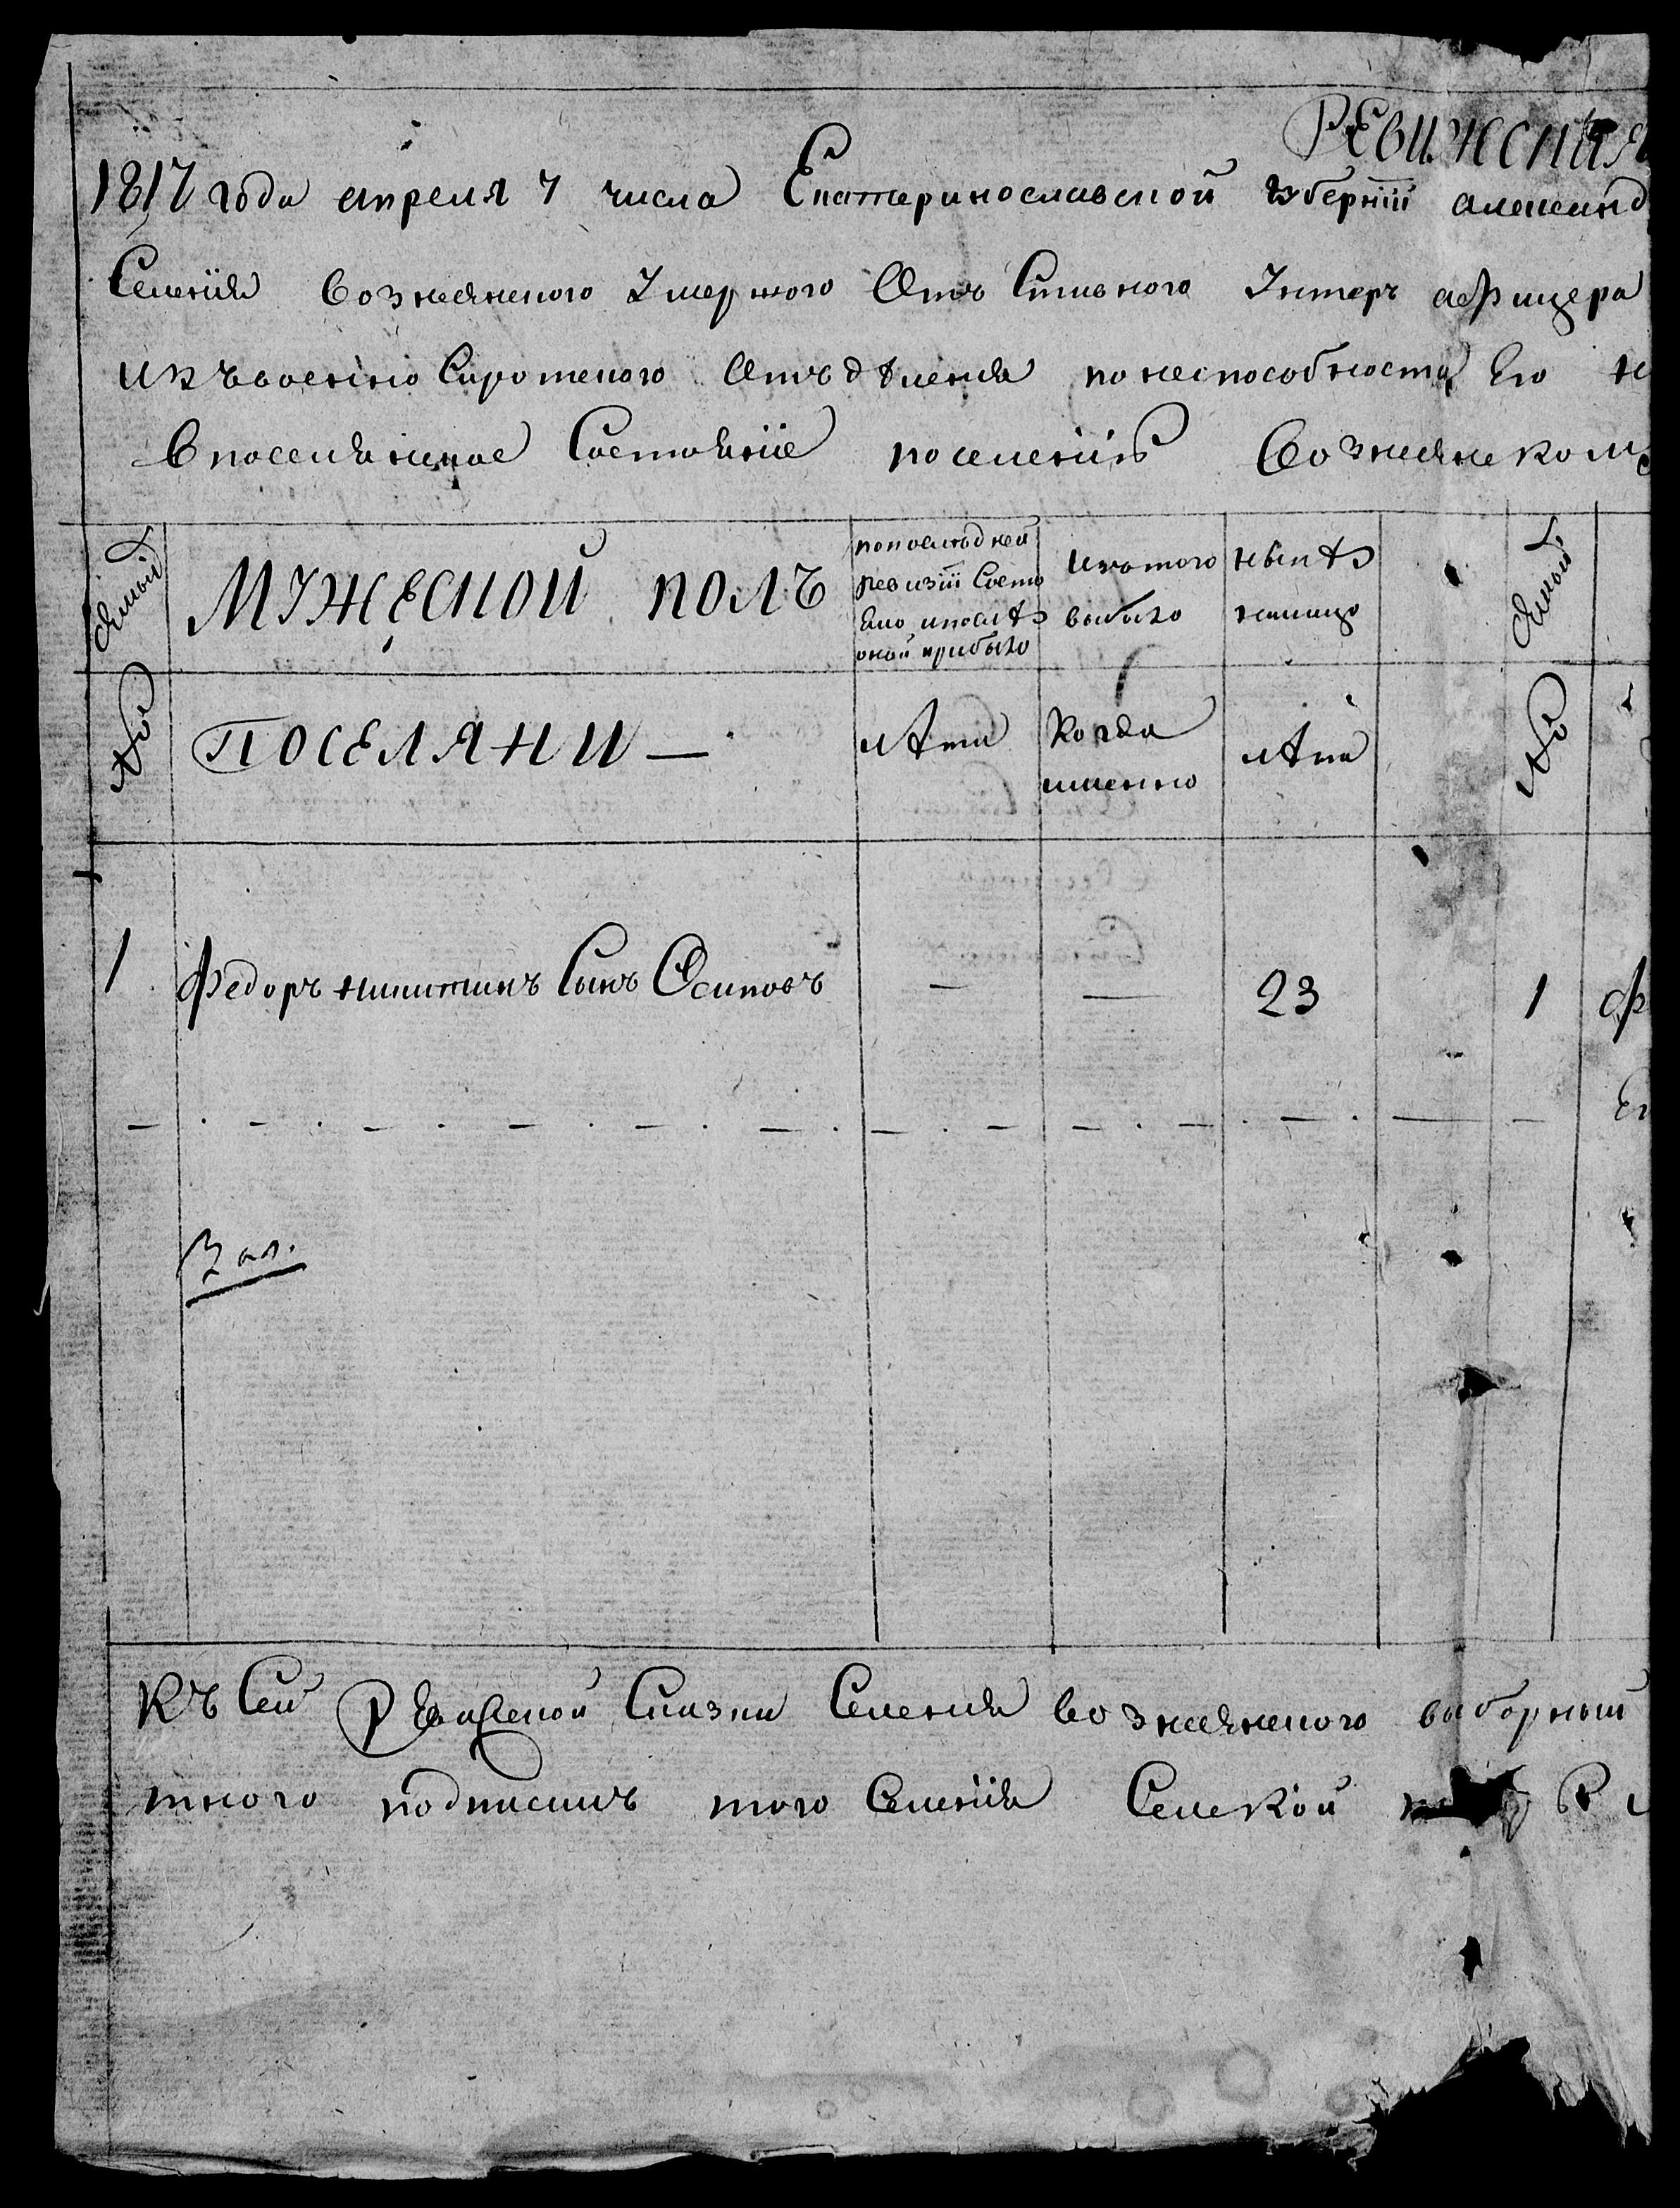 РЕВИЖСКАЯ
1817 года апреля 7 числа Екатеринославской губернии александ
Селения вознесенского Умершого Отъ Ставного Унтеръ афицера
изъ военно Сиротского Отъделения по неспособности Его
в поселянское Состояние поселенъ Вознесенском
Семьи
МУЖЕСКОЙ ПОЛЪ
по последней ревизии Состо яло и после оной прибыло
Изътого выбыло
ныне налицо
Семьи
№
ПОСЕЛЯНИ —
лета
Когда именно
лета
№
1 Федоръ никитинъ Сынъ Осиповъ — — 23 1 Ф
Къ Сей Ревижской Сказки Селения вознесенского выборный
тного подписинъ того Селения Селской